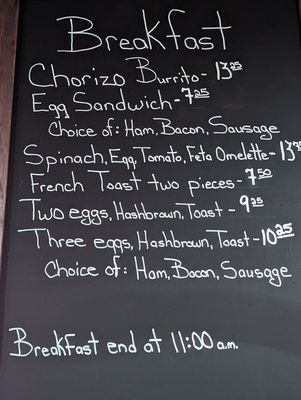 Breakfast
Chorizo Burrito - 13.25
Egg Sandwich - 7.25
Choice of: Ham, Bacon, Sausage
Spinach, Egg, Tomato, Feta Omelette -
French Toast two pieces - 7.50
Two eggs, Hashbrown, Toast - 9.25
Three eggs, Hashbrown, Toast - 10.25
Choice of: Ham, Bacon, Sausage
Breakfast end at 11:00 a.m.